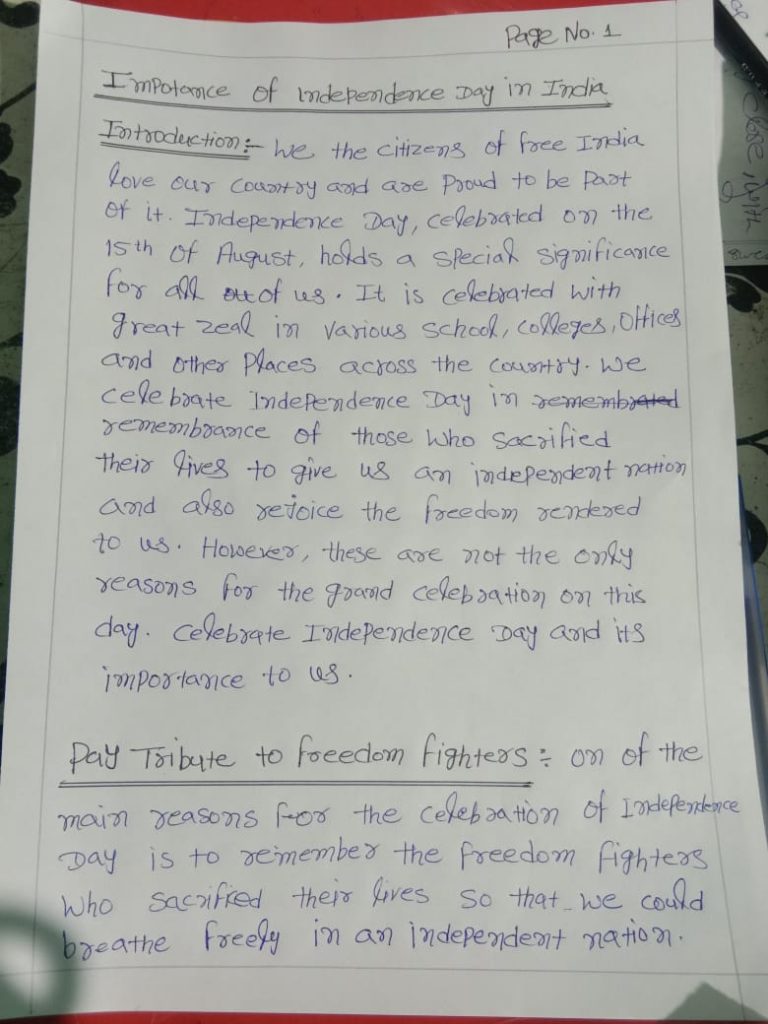 Page No. 1
Impotance of independence Day in India
Introduction:- We the citizens of free India
love our country and are proud to be part
of it. Independence Day, celebrated on the
15th of August, holds a special significance
for all of us. It is celebrated with
great zeal in various school, colleges, offices
and other places across the country. We
celebrate independence Day in remembrated
remembrance of those who sacrified
their lives to give us an independent nation
and also rejoice the freedom rendered
to us. However, these are not the only
reasons for the grand celebration on this
day. celebrate Independence Day and its
importance to us.
Pay Tribute to freedom fighters :- on of the
main reasons for the celebration of Independence
Day is to reimember the freedom fighters
who sacrified their lives so that we could
breathe freely in an independent nation.
close, with